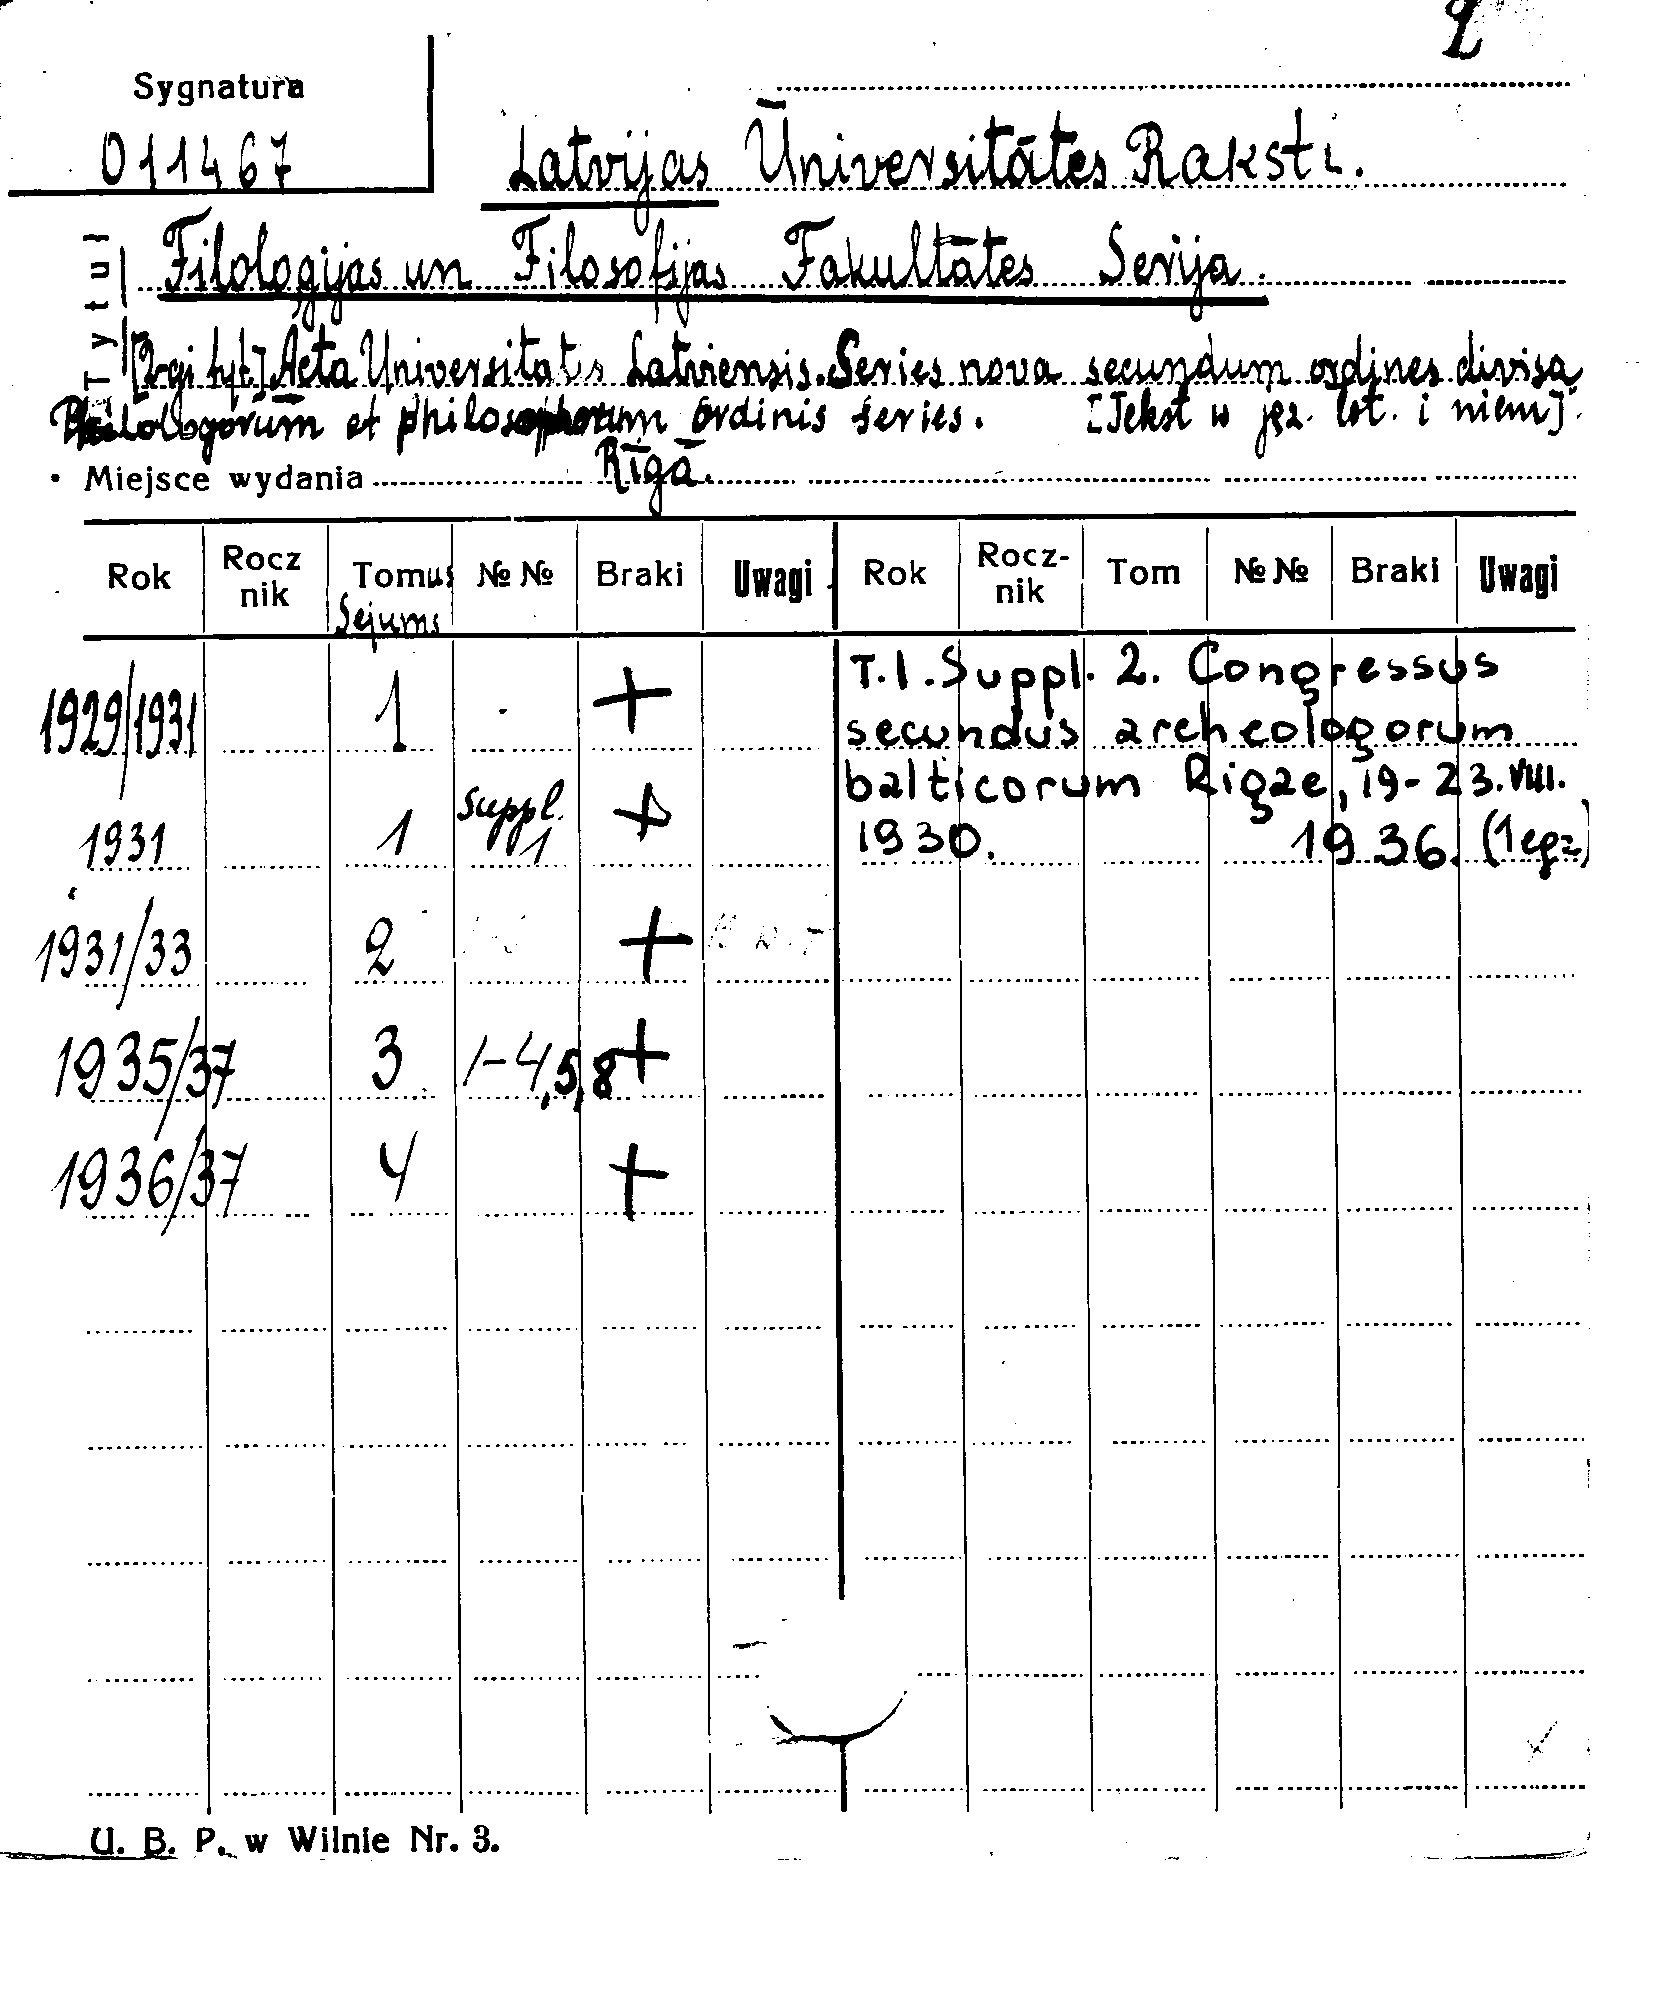 2
Sygnatura
011467
Latvijas Ūniversitātes Raksti.
Tytuł
Filologijas un Filosofijas Fakultātes Serija.
[2-gi tyt.] Acta Universitatis Latviensis. Series nova secundum ordines divisa
Philologorum et philosophorum ordinis series. [Tekst w jęz. łot. i niem].
Miejsce wydania Rīgā.
Rok Rocz nik Tomus Sējums №№ Braki Uwagi Rok Rocz-nik Tom №№ Braki Uwagi
1929/1931 1 - +
T.1. Suppl. 2. Congressus
secundus archeologorum
balticorum Rigae, 19-23.VIII.
1931 1 Suppl. 1 +
1930. 1936. (1 egz.)
1931/33 2 +
1935/37 3 1-4,5,8 +
1936/37 4 +
U. B. P. w Wilnie Nr. 3.